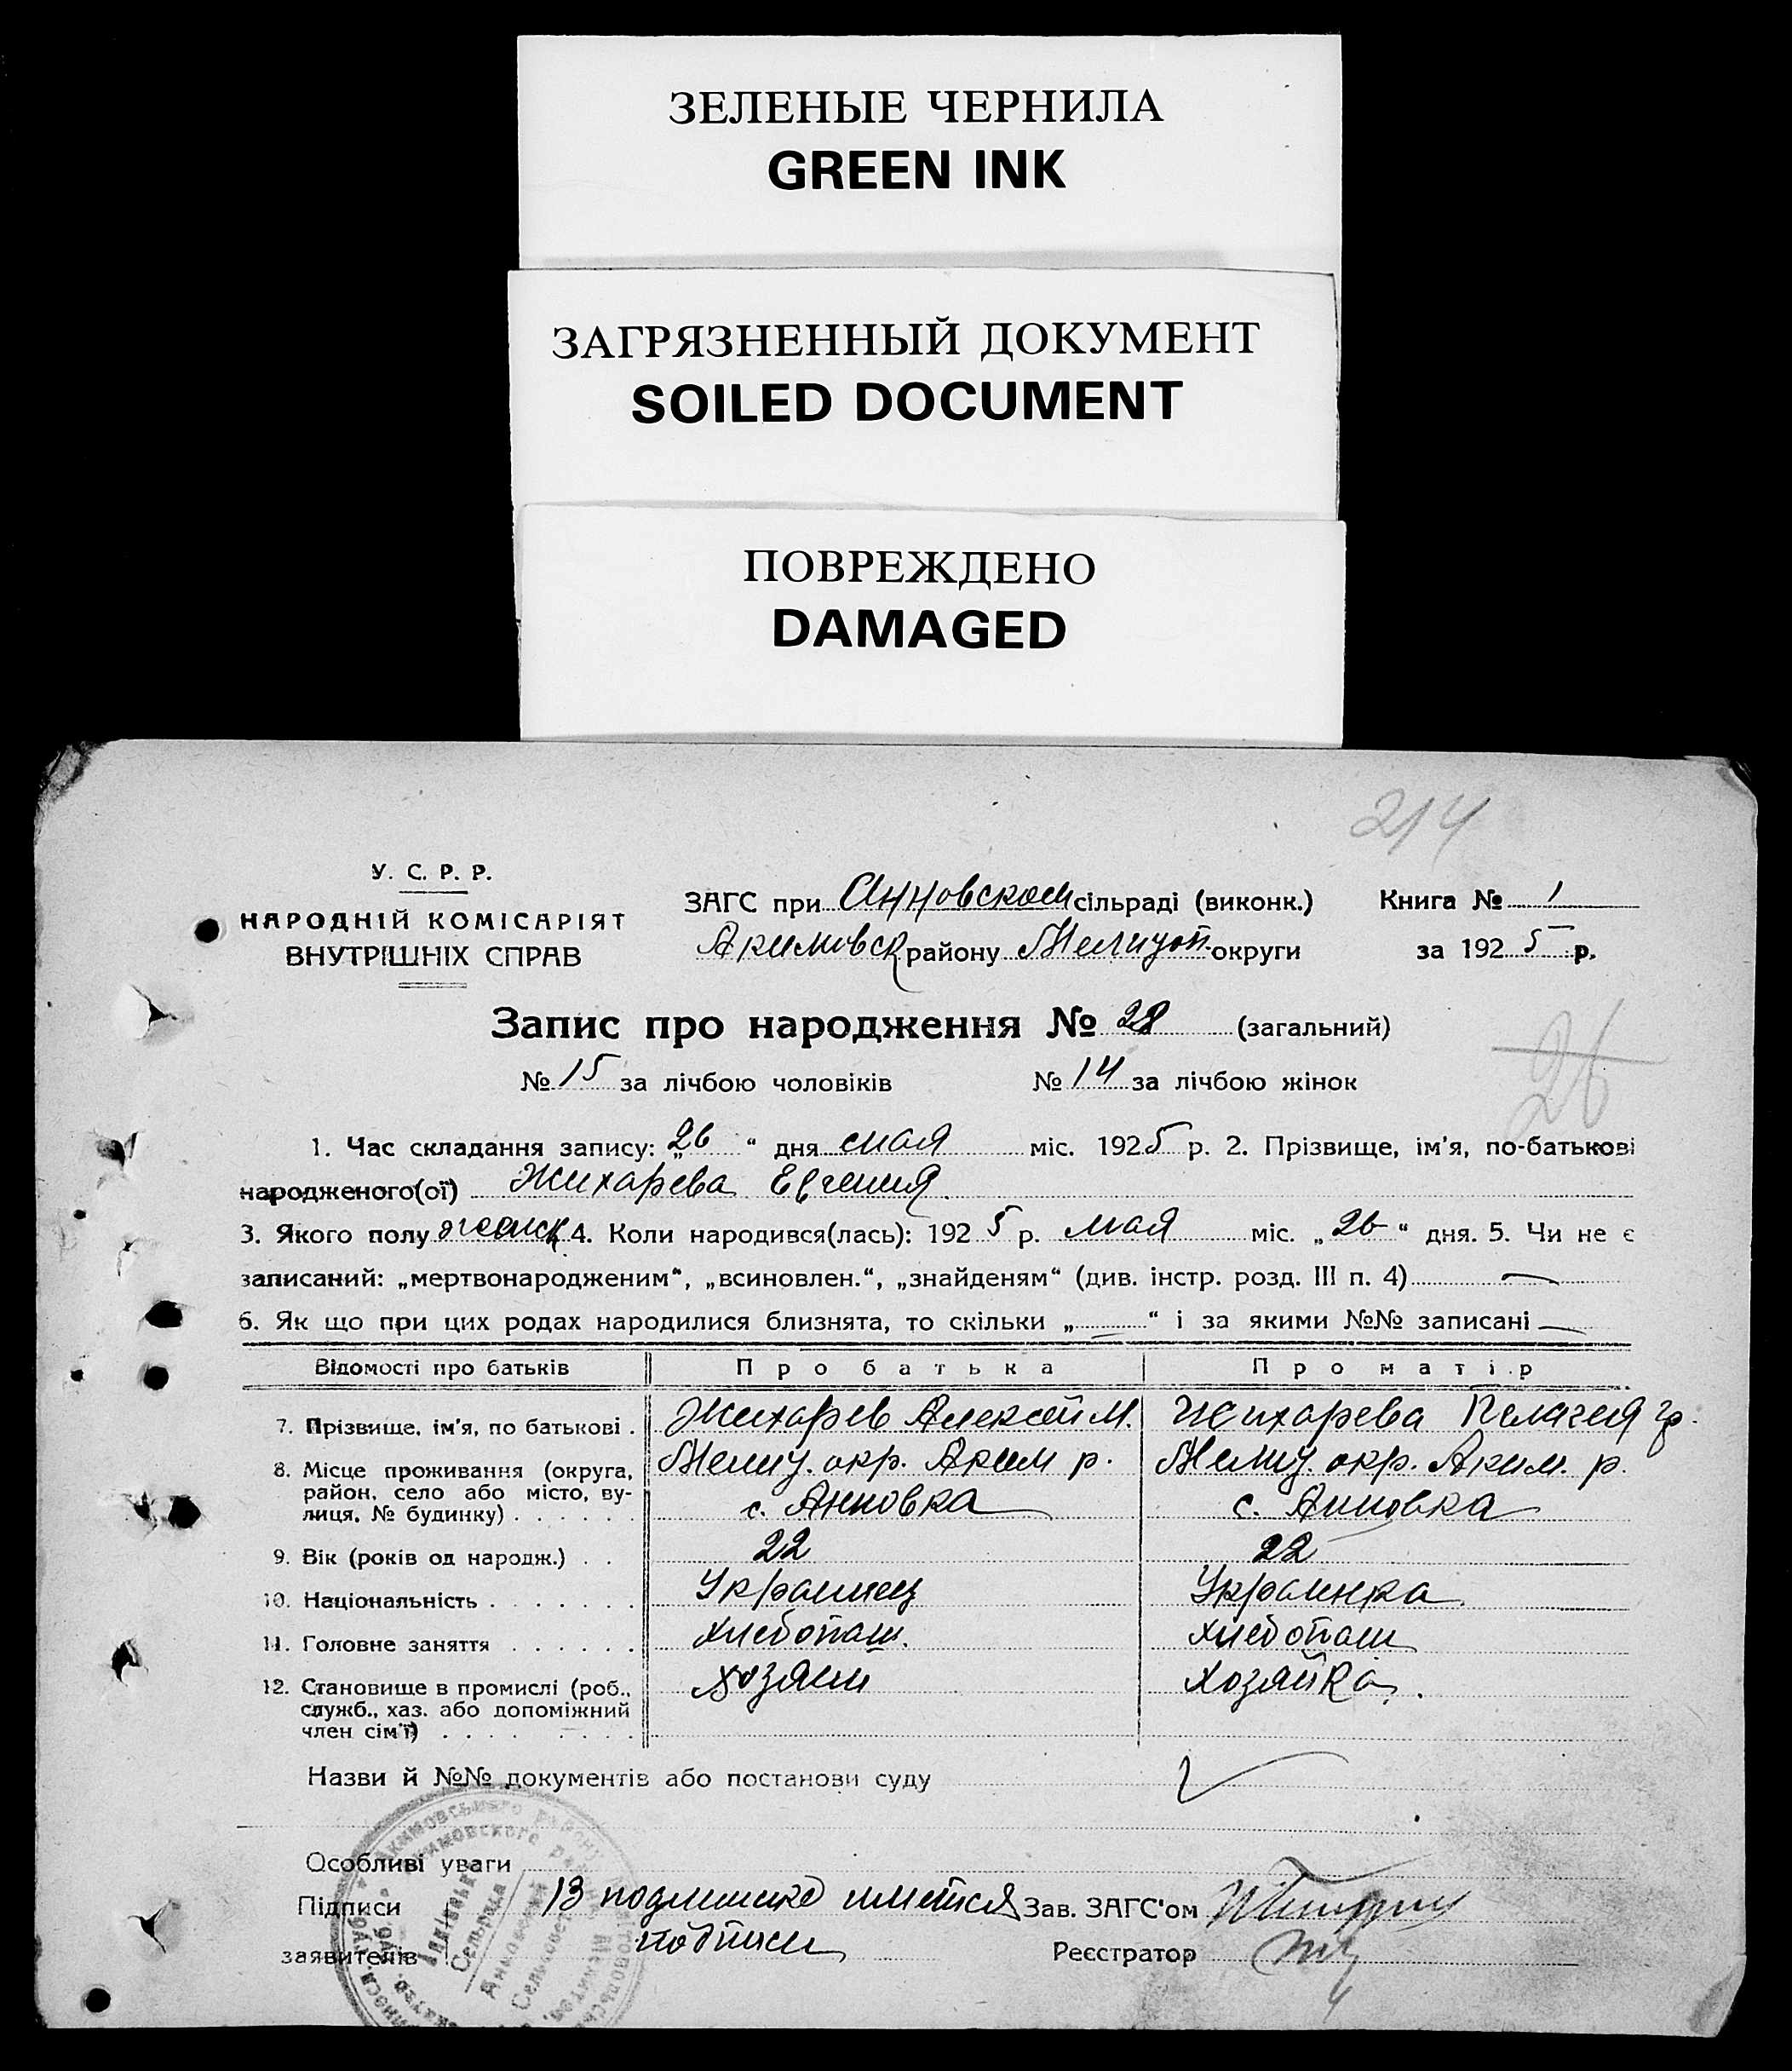 ЗЕЛЕНЫЕ ЧЕРНИЛА
GREEN INK
ЗАГРЯЗНЕННЫЙ ДОКУМЕНТ
SOILED DOCUMENT
ПОВРЕЖДЕНО
DAMAGED
214
У. С. Р. Р.
НАРОДНІЙ КОМІСАРІЯТ
ВНУТРІШНІХ СПРАВ
ЗАГС при Анновском сільраді (виконк.) Книга № 1
Акимовск району Мелитоп. округи за 1925 р.
Запис про народження № 28 (загальний)
26
№ 15 за лічбою чоловіків № 14 за лічбою жінок
1. Час складання запису: „26“ дня мая міс. 1925 р. 2. Прізвище, ім'я, по-батькові
народженого(ої) Жихарева Евгения.
3. Якого полу женск. 4. Коли народився(лась): 1925 р. мая міс. „26“ дня. 5. Чи не є
записаний: „мертвонародженим“, „всиновлен.“, „знайденям“ (див. інстр. розд. III п. 4) —
6. Як що при цих родах народилися близнята, то скільки „—“ і за якими №№ записані —
Відомості про батьків Про батька Про матір
7. Прізвище, ім'я, по батькові . Жихарев Алексей М. Жихарева Пелагея Гр.
8. Місце проживання (округа, Мелит. окр. Аким р. Мелит. окр. Аким. р.
район, село або місто, ву-
лиця, № будинку) . . . . . . с. Анновка с. Анновка
9. Вік (років од народж.) . . 22 22
10. Національність . . . . . . . Украинец Украинка.
11. Головне заняття . . . . . . Хлебопаш. Хлебопаш
12. Становище в промислі (роб., хозяин хозяйка.
служб., хаз. або допоміжний
член сім'ї) . . . . . . . .
Назви й №№ документів або постанови суду
Особливі уваги
Підписи В подлинике имеются Зав. ЗАГС'ом
заявителів подписи Реєстратор
Сельрада
Анновский
Сельсовет